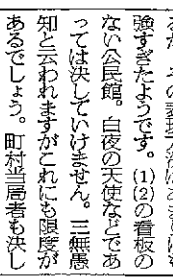 強すぎたようです。(1)(2)の看板の
ない公民館。白夜の天使などであ
っては決していけません。三無愚
知と云われますがこれにも限度が
あるでしょう。町村当局者も決し